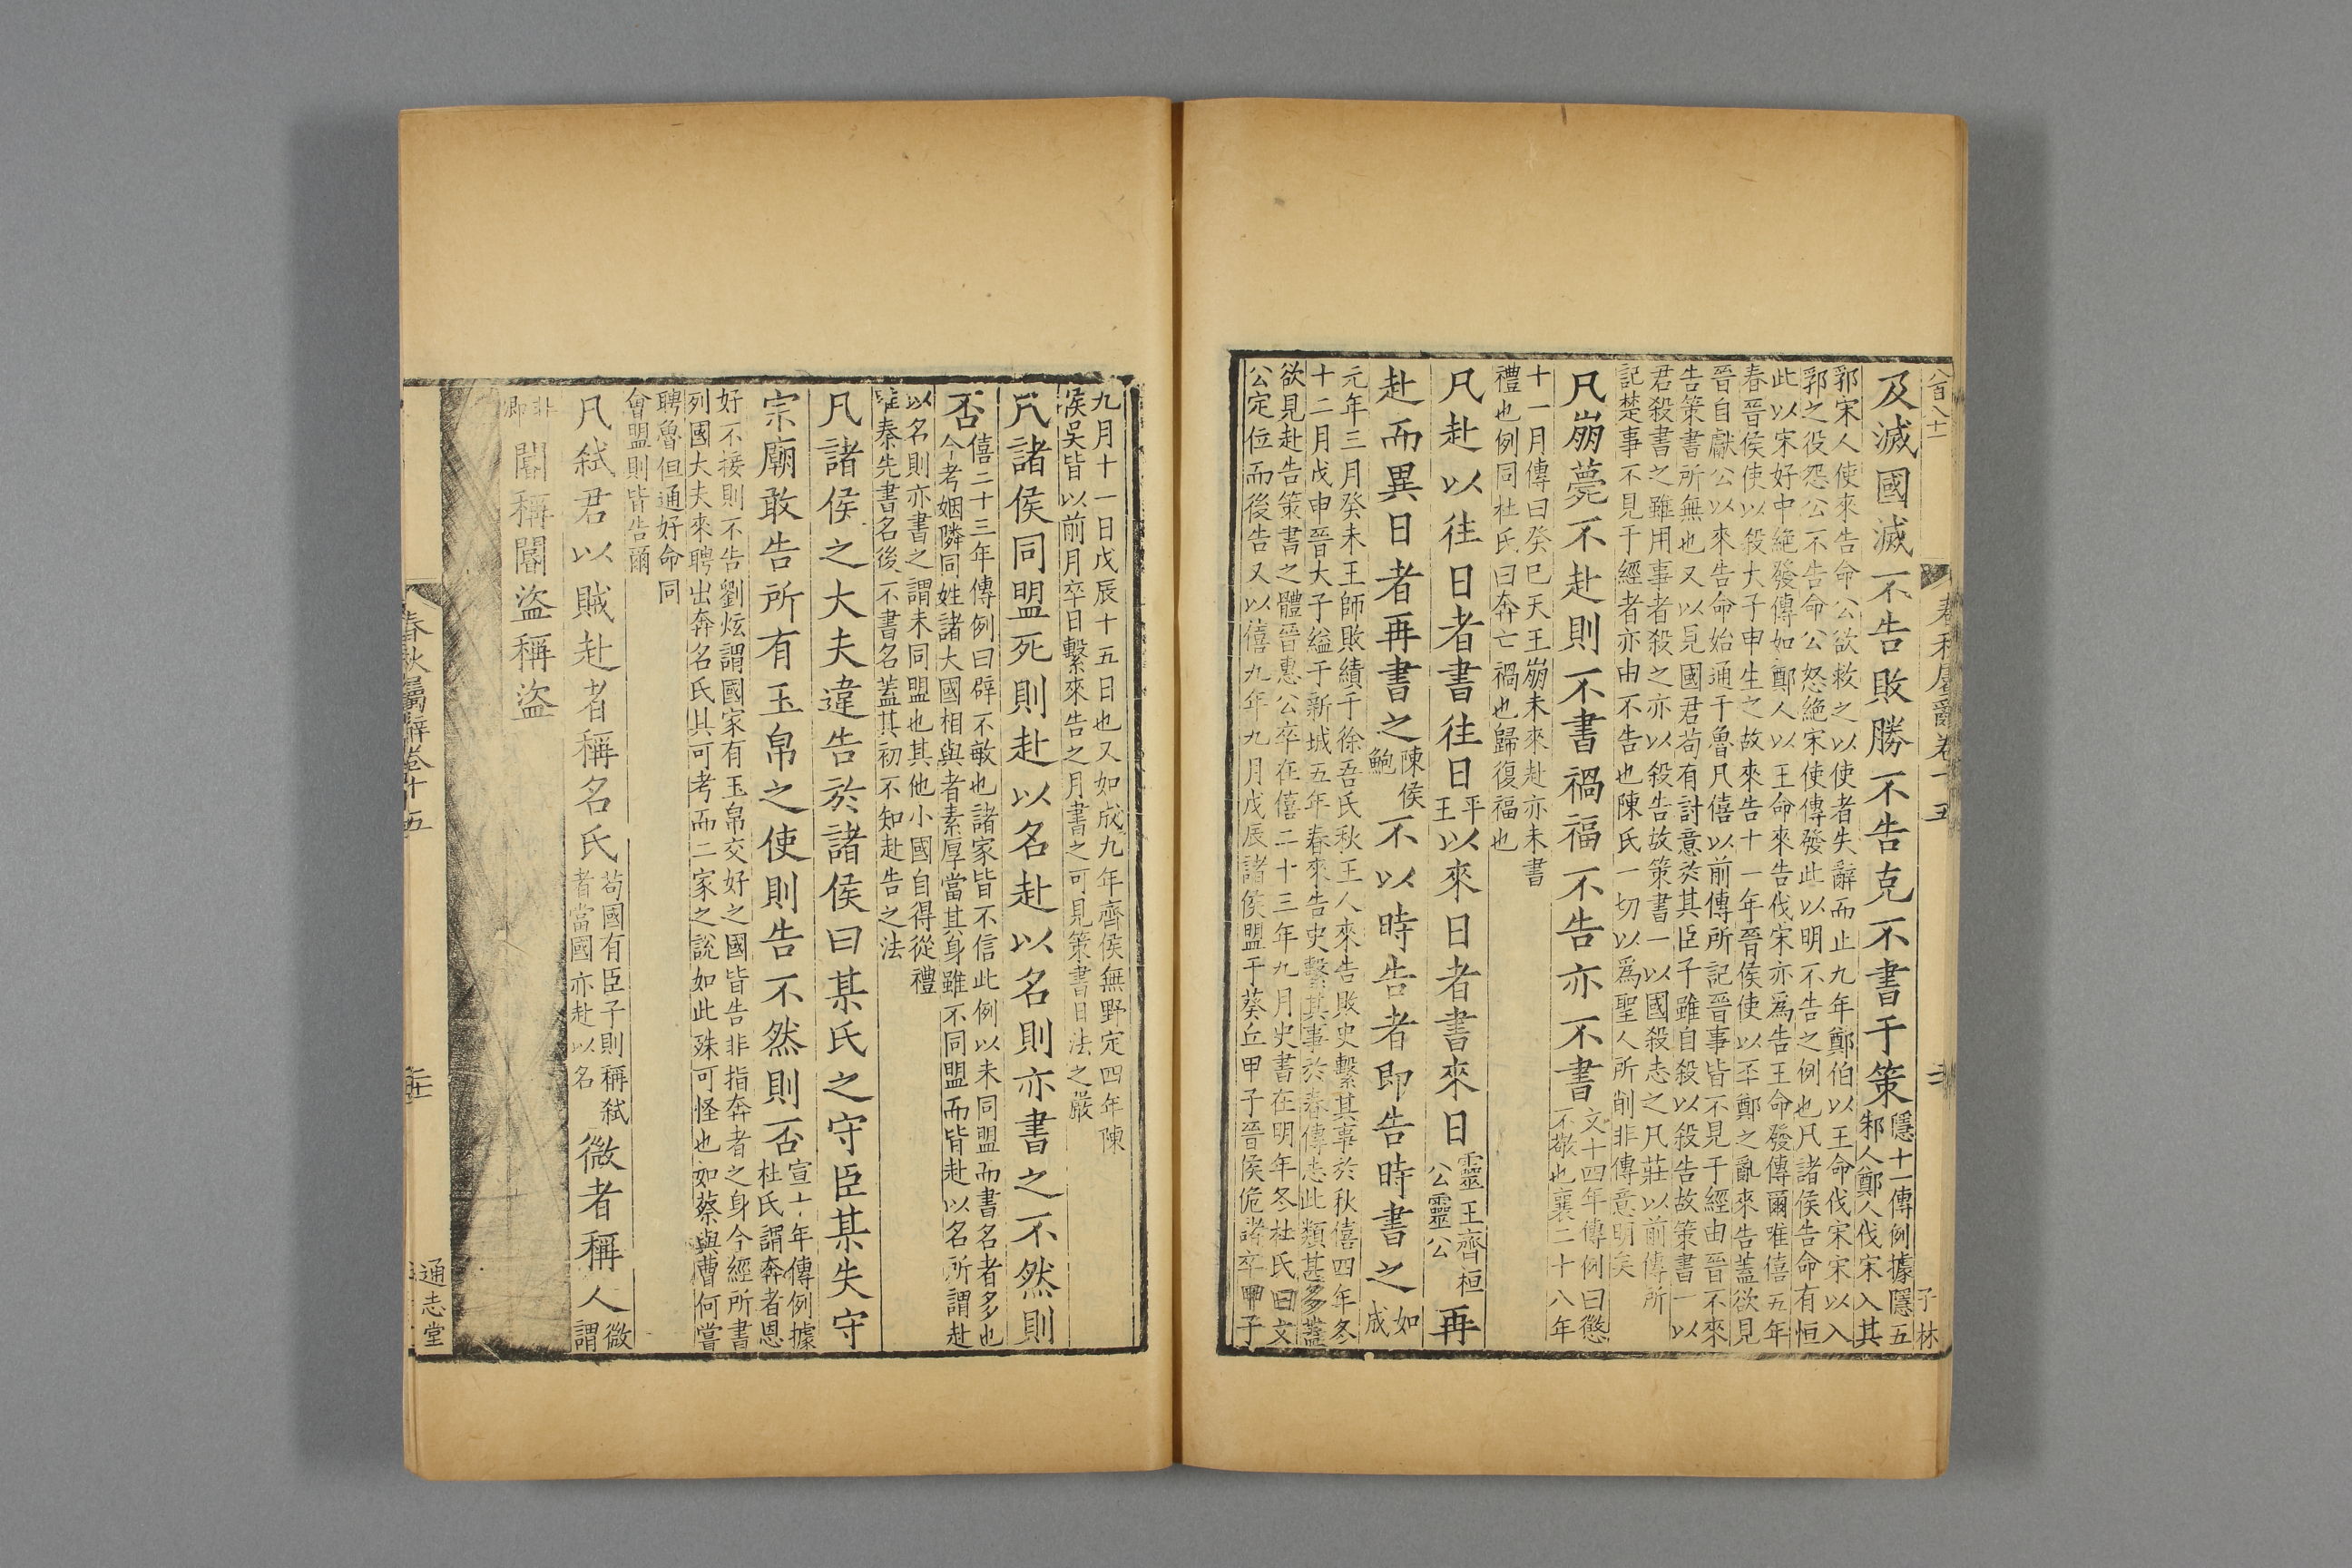 八百八十一
春秋屬辭卷十五
二
子林
及滅國滅不告敗勝不告克不書于策隱十一傳例據隱五
邾人鄭人伐宋入其
郛宋人使來告命公欲救之以使者失辭而止九年鄭伯以王命伐宋宋以入
郛之役怨公不告命公怒絶宋使傳發此以明不告之例也凡諸侯告命有恒
此以宋好中絶發傳如鄭人以王命來告伐宋亦爲告王命發傳爾唯僖五年
春晉侯使以殺大子申生之故來告十一年晉侯使以㔻鄭之亂來告蓋欲見
晉自獻公以來告命始通于魯凡僖以前傳所記晉事皆不見于經由晉不來
告策書所無也又以見國君苟有討意於其臣子雖自殺以殺告故策書一以
君殺書之雖用事者殺之亦以殺告故策書一以國殺志之凡莊以前傳所
記楚事不見于經者亦由不告也陳氏一切以爲聖人所削非傳意明矣
凡崩薨不赴則不書禍福不告亦不書文十四年傳例曰懲
不敬也襄二十八年
十一月傳曰癸巳天王崩未來赴亦未書
禮也例同杜氏曰奔亡禍也歸復福也
凡赴以往日者書往日平
王以來日者書來日靈王齊桓
公靈公再
赴而異日者再書之陳侯
鮑不以時告者即告時書之如
成
元年三月癸未王師敗績于徐吾氏秋王人來告敗史繫其事於秋僖四年冬
十二月戊申晉大子縊于新城五年春來告史繫其事於春傳志此類甚多蓋
欲見赴告策書之體晉惠公卒在僖二十三年九月史書在明年冬杜氏曰文
公定位而後告又以僖九年九月戊辰諸侯盟于葵丘甲子晉侯佹諸卒甲子
九月十一日戊辰十五日也又如成九年齊侯無野定四年陳
侯吳皆以前月卒日繫來告之月書之可見策書日法之嚴
凡諸侯同盟死則赴以名赴以名則亦書之不然則
否僖二十三年傳例曰辟不敏也諸家皆不信此例以未同盟而書名者多也
今考姻隣同姓諸大國相與者素厚當其身雖不同盟而皆赴以名所謂赴
以名則亦書之謂未同盟也其他小國自得從禮
唯秦先書名後不書名蓋其初不知赴告之法
凡諸侯之大夫違告於諸侯曰某氏之守臣某失守
宗廟敢告所有玉帛之使則告不然則否宣十年傳例據
杜氏謂奔者恩
好不接則不告劉炫謂國家有玉帛交好之國皆告非指奔者之身今經所書
列國大夫來聘出奔名氏具可考而二家之說如此殊可怪也如蔡與曹何嘗
聘魯但通好命同
會盟則皆告爾
凡弑君以賊赴者稱名氏苟國有臣子則稱弑
者當國亦赴以名微者稱人微
謂
非
卿閽稱閽盜稱盜
春秋屬辭卷十五
通志堂